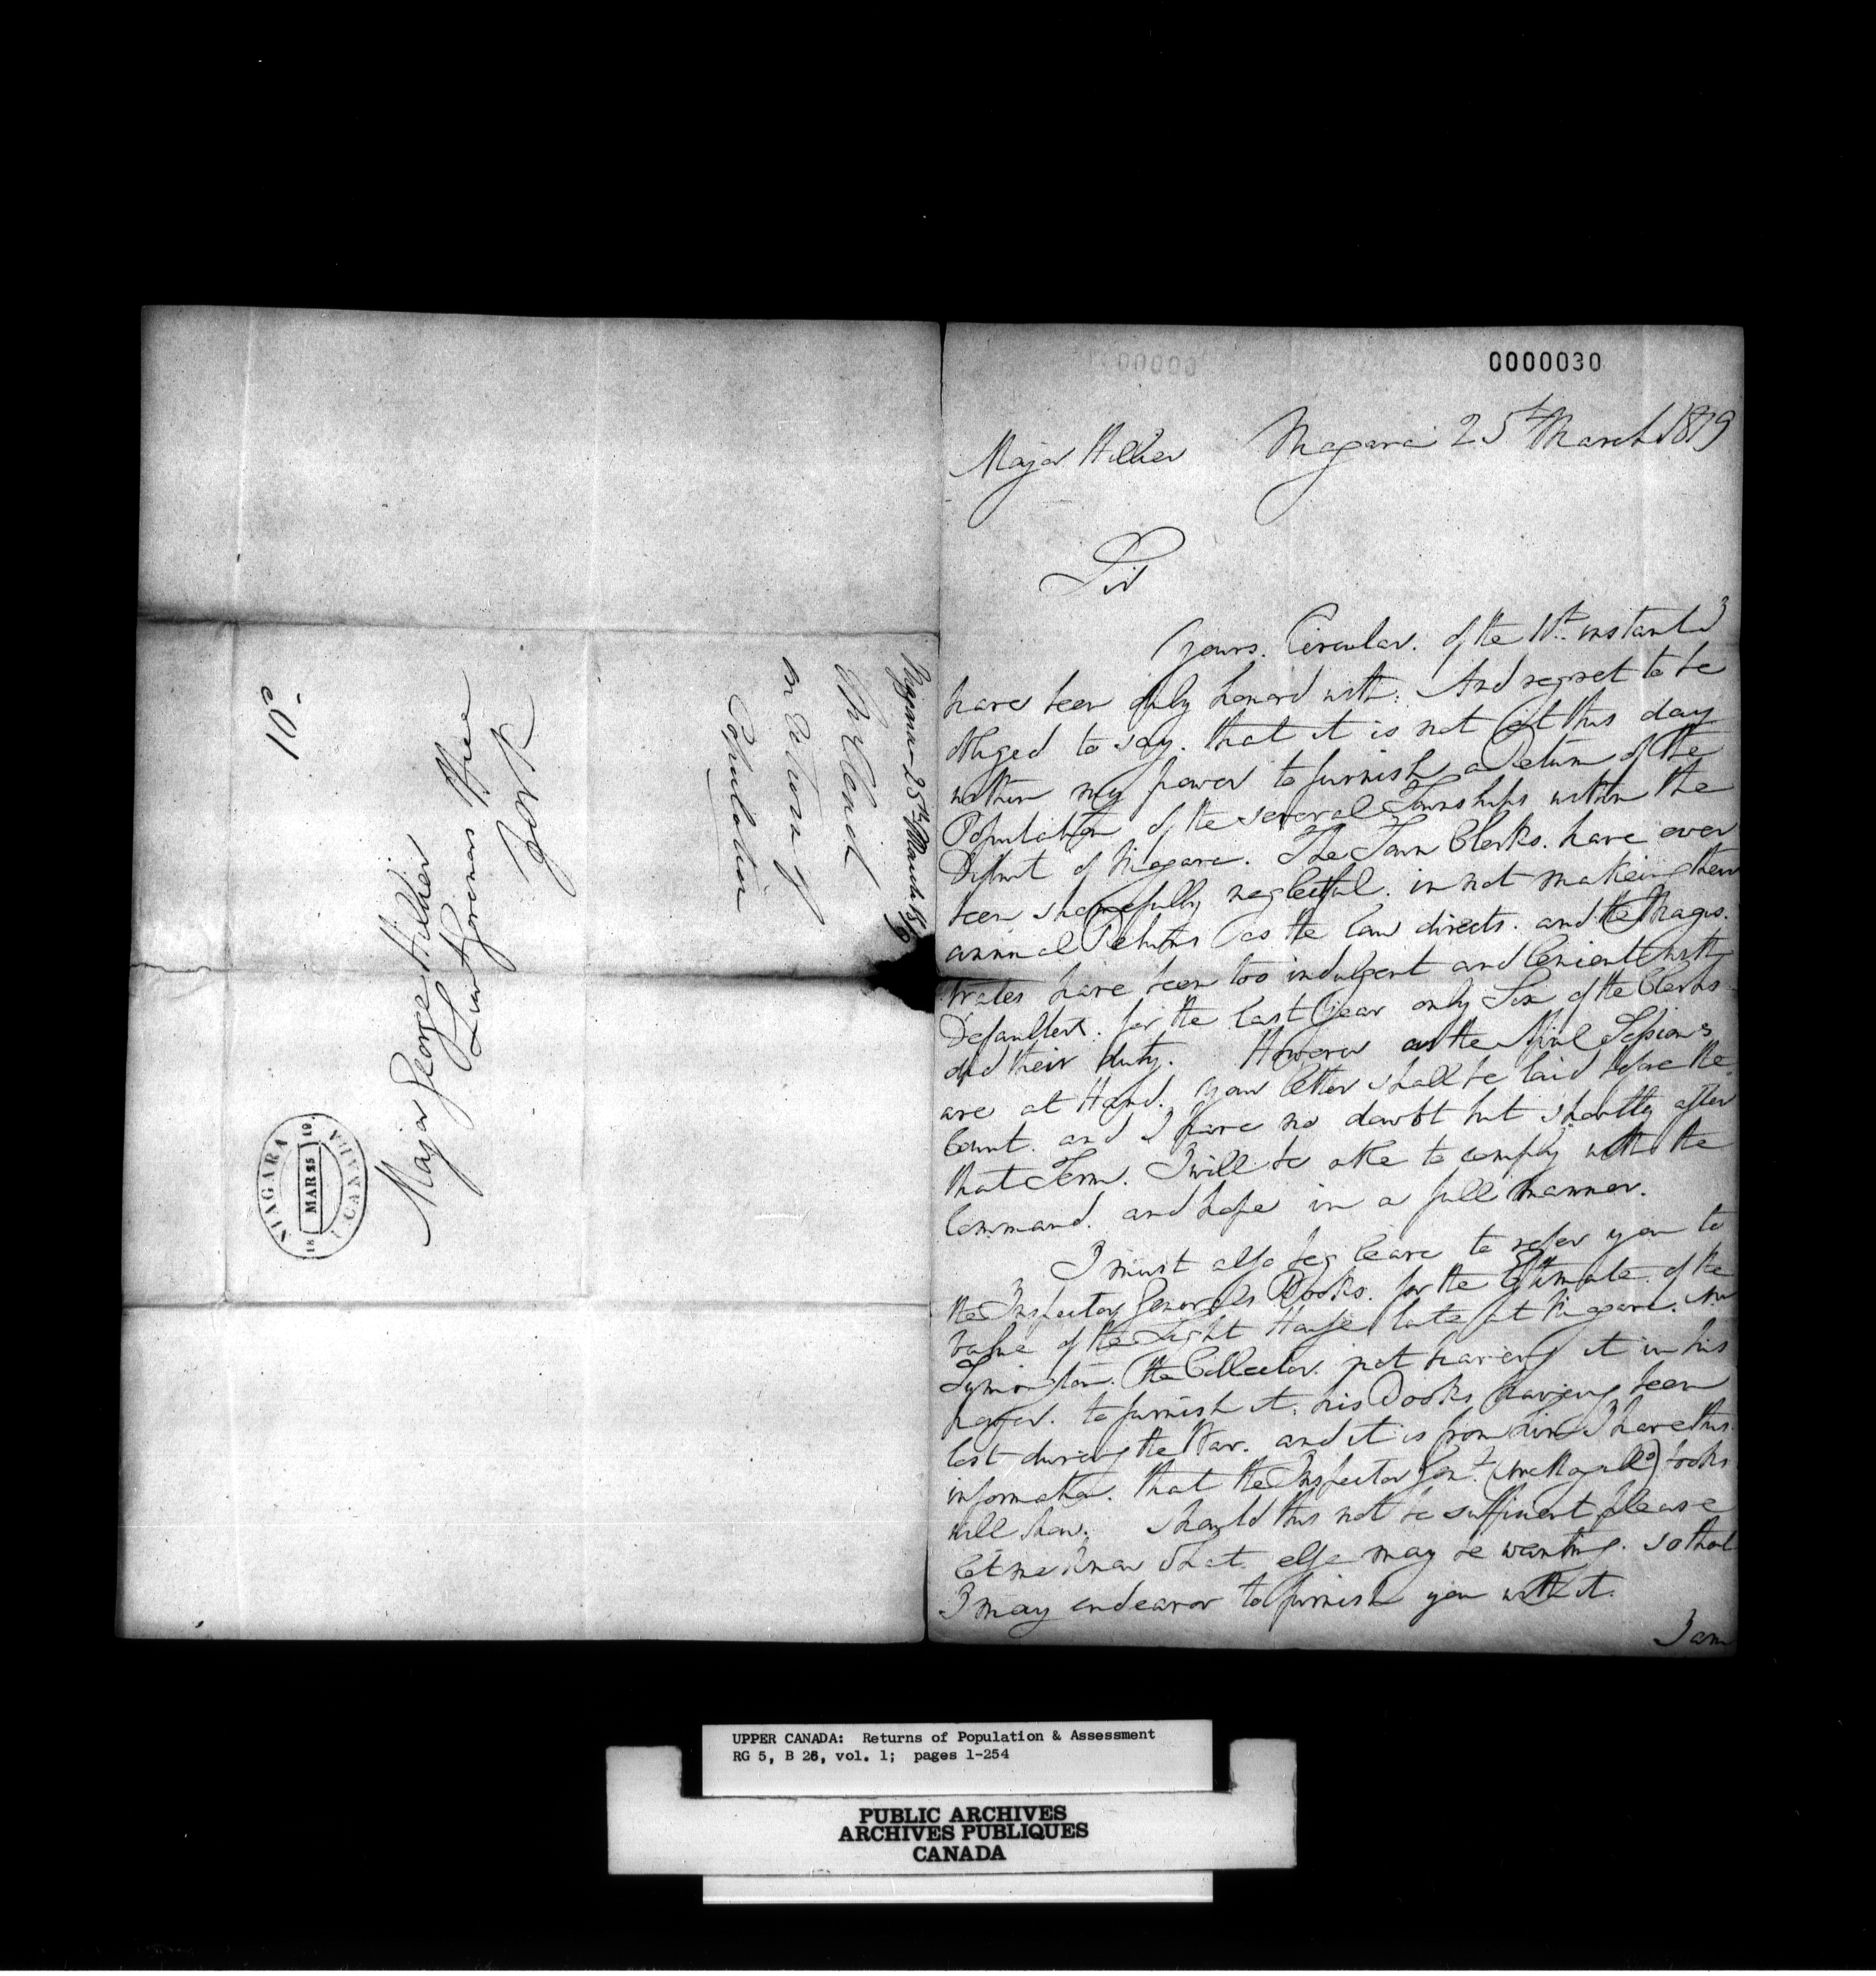 0000030
Major Hillier Niagara 25th March 1819
Sir
Yours. Circular. of the 11th instant I
have been duly honord with. And regret to be
obliged to say. that it is not at this day
within my power to furnish a Return of the
Population of the several Townships within the
District of Niagara. The Town Clerks. have ever
been shamefully neglectful. in not makeing their
annual Returns as the law directs. and the Magis-
trates have been too indulgent and lenient with
Defaulters. for the last year only Six of the Clerks
did their duty. However as the April Sessions
are at Hand. your letter shall be laid before the
Court. and I have no doubt but shortly after
that Term. I will be able to comply with the
Command. and hope in a full manner.
I must also beg leave to refer you to
the Inspector Generals Books. for the Estimate of the
value of the Light House late at Niagara. Mr
Symington. the Collector. not having it in his
power. to furnish it. his Books having been
lost during the War. and it is from him I have this
information. that the Inspector Genl. books
will shew. Should this not be sufficient please
let me know what else may be wanting. so that
I may endeavor to furnish you with it.
I am
Niagara 25th March 1819
on Returns of
Population
Major George Hillier
Lieut Governors Office
York
NIAGARA U. CANADA
18 MAR 25 19
UPPER CANADA: Returns of Population & Assessment
RG 5, B 26, vol. 1; pages 1-254
PUBLIC ARCHIVES
ARCHIVES PUBLIQUES
CANADA